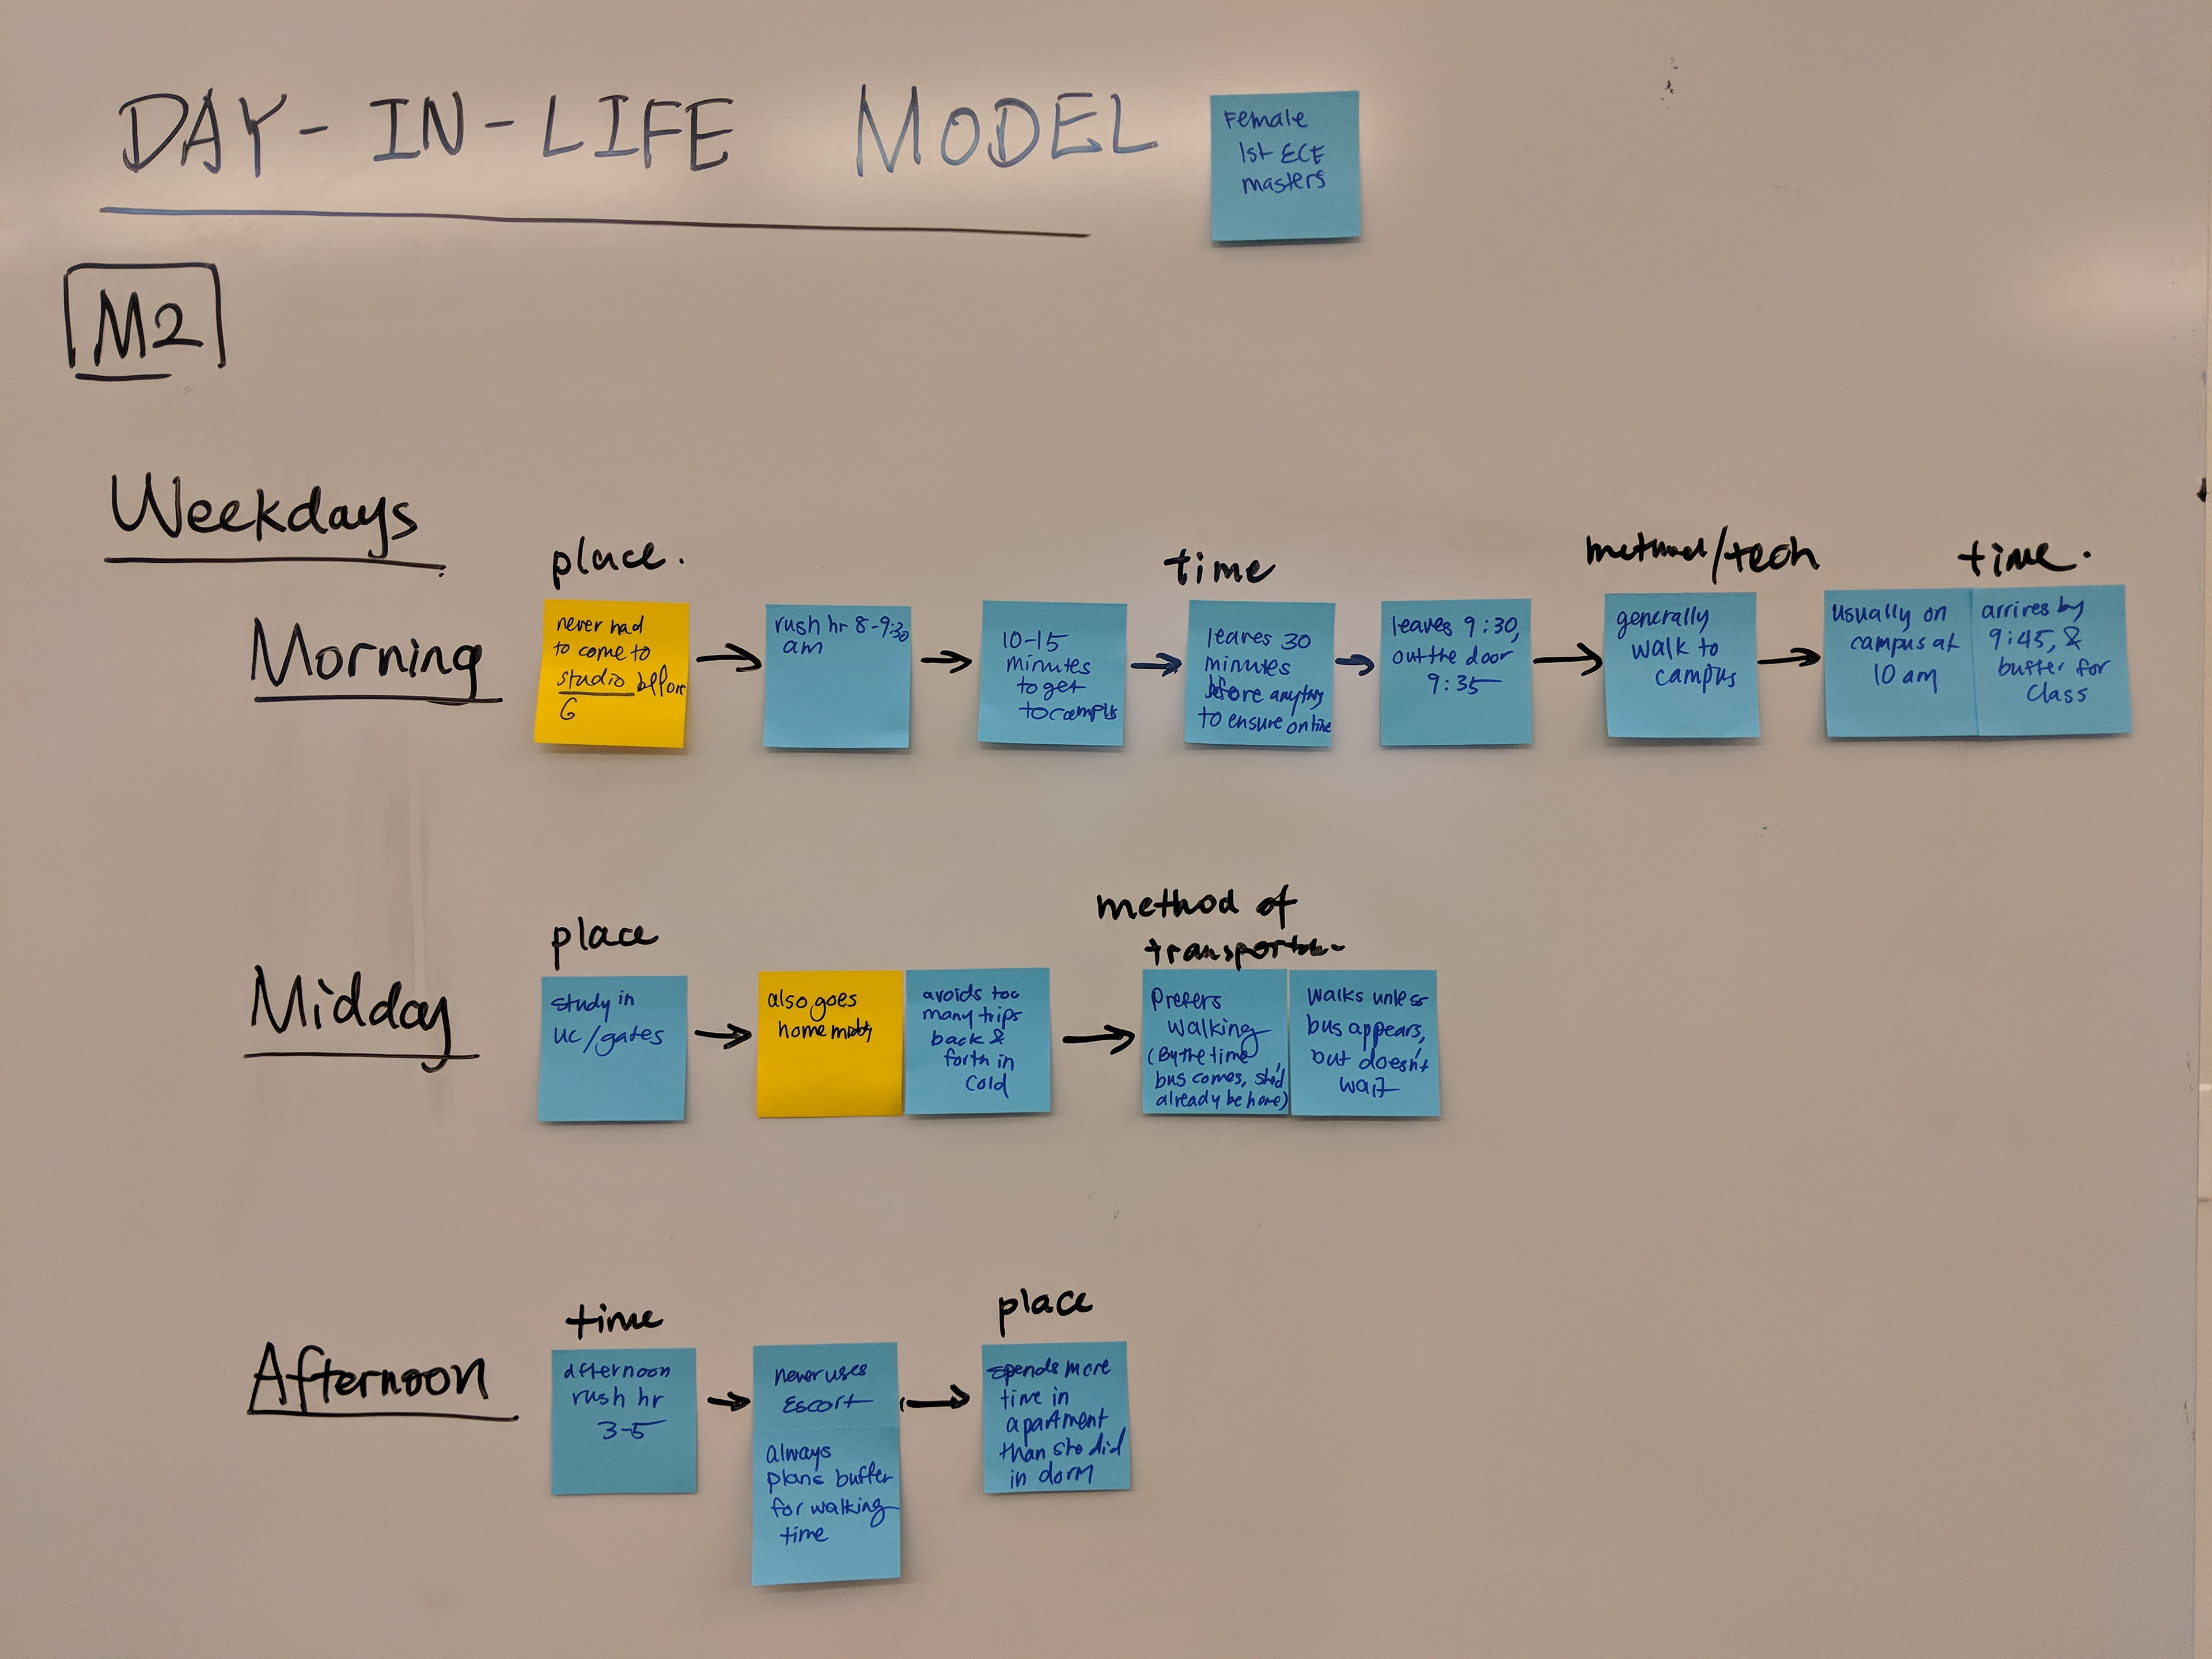 DAY-IN-LIFE MODEL
Female
1st ECE
masters
M2
Weekdays
Morning
place.
never had
to come to
studio before
6
rush hr 8-9:30
am
10-15
minutes
to get
to campus
time
leaves 30
minutes
before anything
to ensure on time
leaves 9:30,
out the door
9:35
method/tech
generally
walk to
campus
usually on
campus at
10 am
time.
arrives by
9:45, &
buffer for
class
Midday
place
study in
UC/gates
also goes
home midday
avoids too
many trips
back &
forth in
cold
method of
Prefers
walking
(By the time
bus comes, she'd
already be home)
walks unless
bus appears,
but doesn't
wait
Afternoon
time
afternoon
rush hr
3-5
never uses
Escort
always
plans buffer
for walking
time
place
spends more
time in
apartment
than she did
in dorm